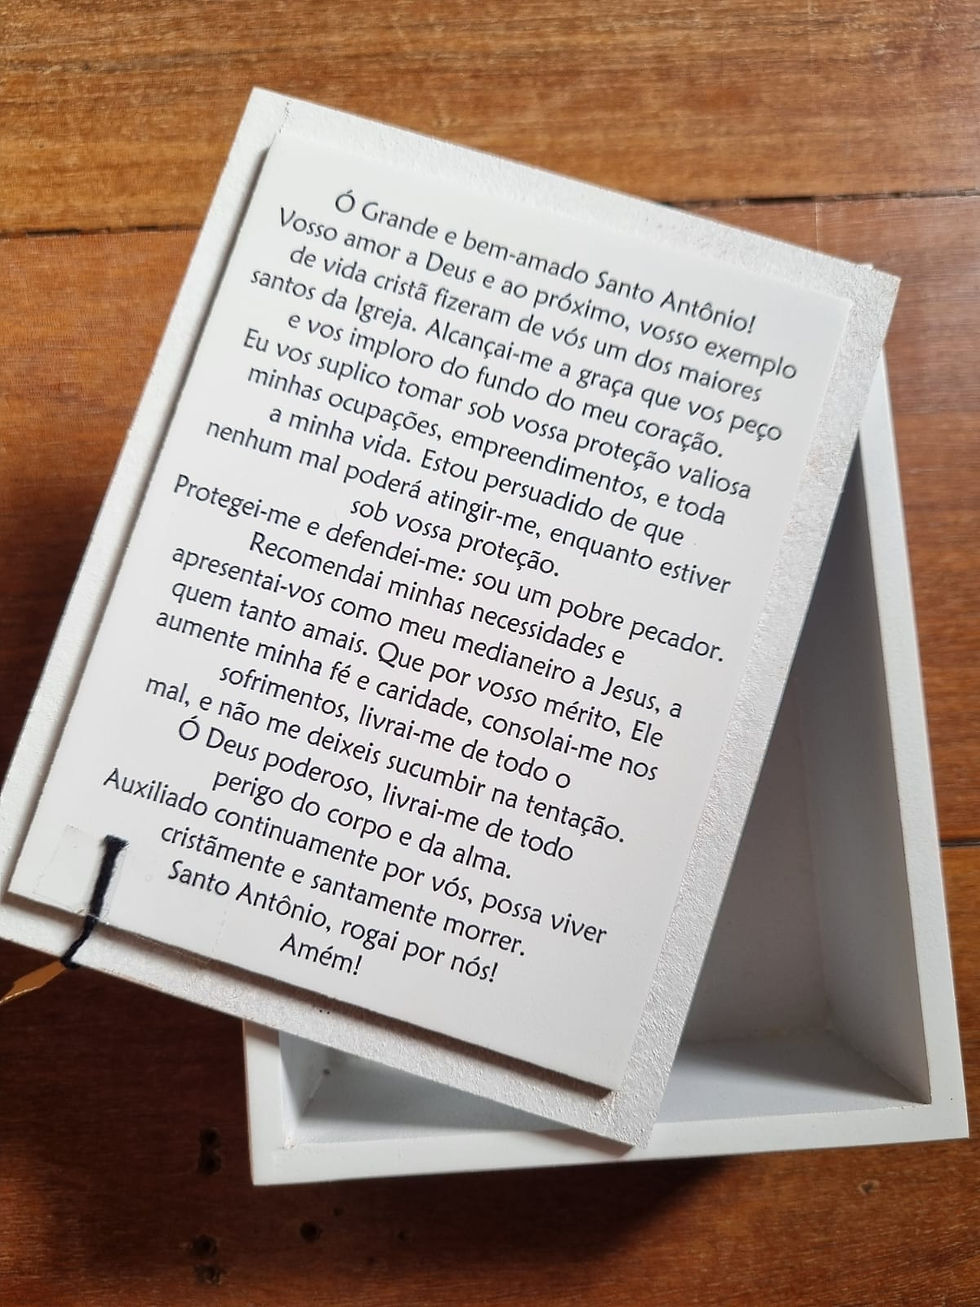 Ó Grande e bem-amado Santo Antônio!
Vosso amor a Deus e ao próximo, vosso exemplo
de vida cristã fizeram de vós um dos maiores
santos da Igreja. Alcançai-me a graça que vos peço
e vos imploro do fundo do meu coração.
Eu vos suplico tomar sob vossa proteção valiosa
minhas ocupações, empreendimentos, e toda
a minha vida. Estou persuadido de que
nenhum mal poderá atingir-me, enquanto estiver
sob vossa proteção.
Protegei-me e defendei-me: sou um pobre pecador.
Recomendai minhas necessidades e
apresentai-vos como meu medianeiro a Jesus, a
quem tanto amais. Que por vosso mérito, Ele
aumente minha fé e caridade, consolai-me nos
sofrimentos, livrai-me de todo o
mal, e não me deixeis sucumbir na tentação.
Ó Deus poderoso, livrai-me de todo
perigo do corpo e da alma.
Auxiliado continuamente por vós, possa viver
cristãmente e santamente morrer.
Santo Antônio, rogai por nós!
Amém!